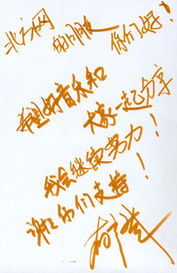 北方网 的朋友 你们好！
希望好音乐和
大家一起分享
我会继续努力！
谢谢你们支持！